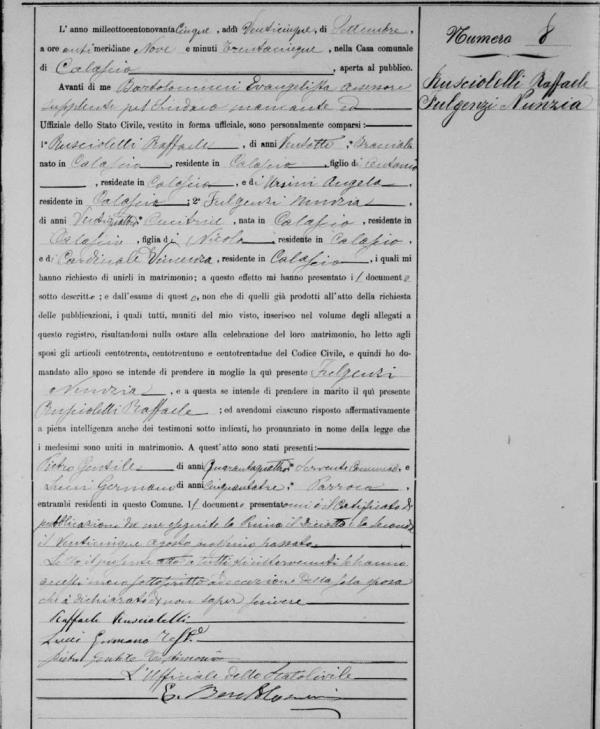 L' anno milleottocentonovantacinque, addì venticinque, di Settembre,
a ore antimeridiane Nove e minuti Trentacinque, nella Casa comunale
di Calascio, aperta al pubblico.
Avanti di me Bartolomucci Evangelista assessore
supplente pel Sindaco mancante ed
Uffiziale dello Stato Civile, vestito in forma ufficiale, sono personalmente comparsi:
1° Rusciolelli Raffaele, di anni Ventotto,
nato in Calascio, residente in Calascio, figlio di Antonio
, residente in Calascio, e di Ursini Angela
residente in Calascio; 2° Fulgenzi Nunzia
di anni Ventiquattro, Cucitrice, nata in Calascio, residente in
Calascio, figlia di Nicola, residente in Calascio,
e di Cardinale Vincenza, residente in Calascio, i quali mi
hanno richiesto di unirli in matrimonio; a questo effetto mi hanno presentato il documento
sotto descritto; e dall'esame di questo, non che di quelli già prodotti all'atto della richiesta
delle pubblicazioni, i quali tutti, muniti del mio visto, inserisco nel volume degli allegati a
questo registro, risultandomi nulla ostare alla celebrazione del loro matrimonio, ho letto agli
sposi gli articoli centotrenta, centotrentuno e centotrentadue del Codice Civile, e quindi ho do-
mandato allo sposo se intende di prendere in moglie la quì presente Fulgenzi
Nunzia, e a questa se intende di prendere in marito il quì presente
Rusciolelli Raffaele; ed avendomi ciascuno risposto affermativamente
a piena intelligenza anche dei testimoni sotto indicati, ho pronunziato in nome della legge che
i medesimi sono uniti in matrimonio. A quest'atto sono stati presenti:
Pietro Gentile di anni Quarantaquattro, Servente Comunale e
Lucci Germano di anni Cinquantatre,
entrambi residenti in questo Comune. Il documento presentatomi è il certificato di
pubblicazioni da me eseguite la prima il diciotto e la seconda
il venticinque agosto prossimo passato.
Letto il presente atto a tutti gl'intervenuti l'hanno
meco sottoscritto ad eccezione della sola sposa
che à dichiarato di non saper scrivere
Raffaele Rusciolelli
Lucci Germano
Pietro Gentile Testimonio
L'Uffiziale dello Stato Civile
E. Bartolomucci
Numero 8
Rusciolelli Raffaele
Fulgenzi Nunzia